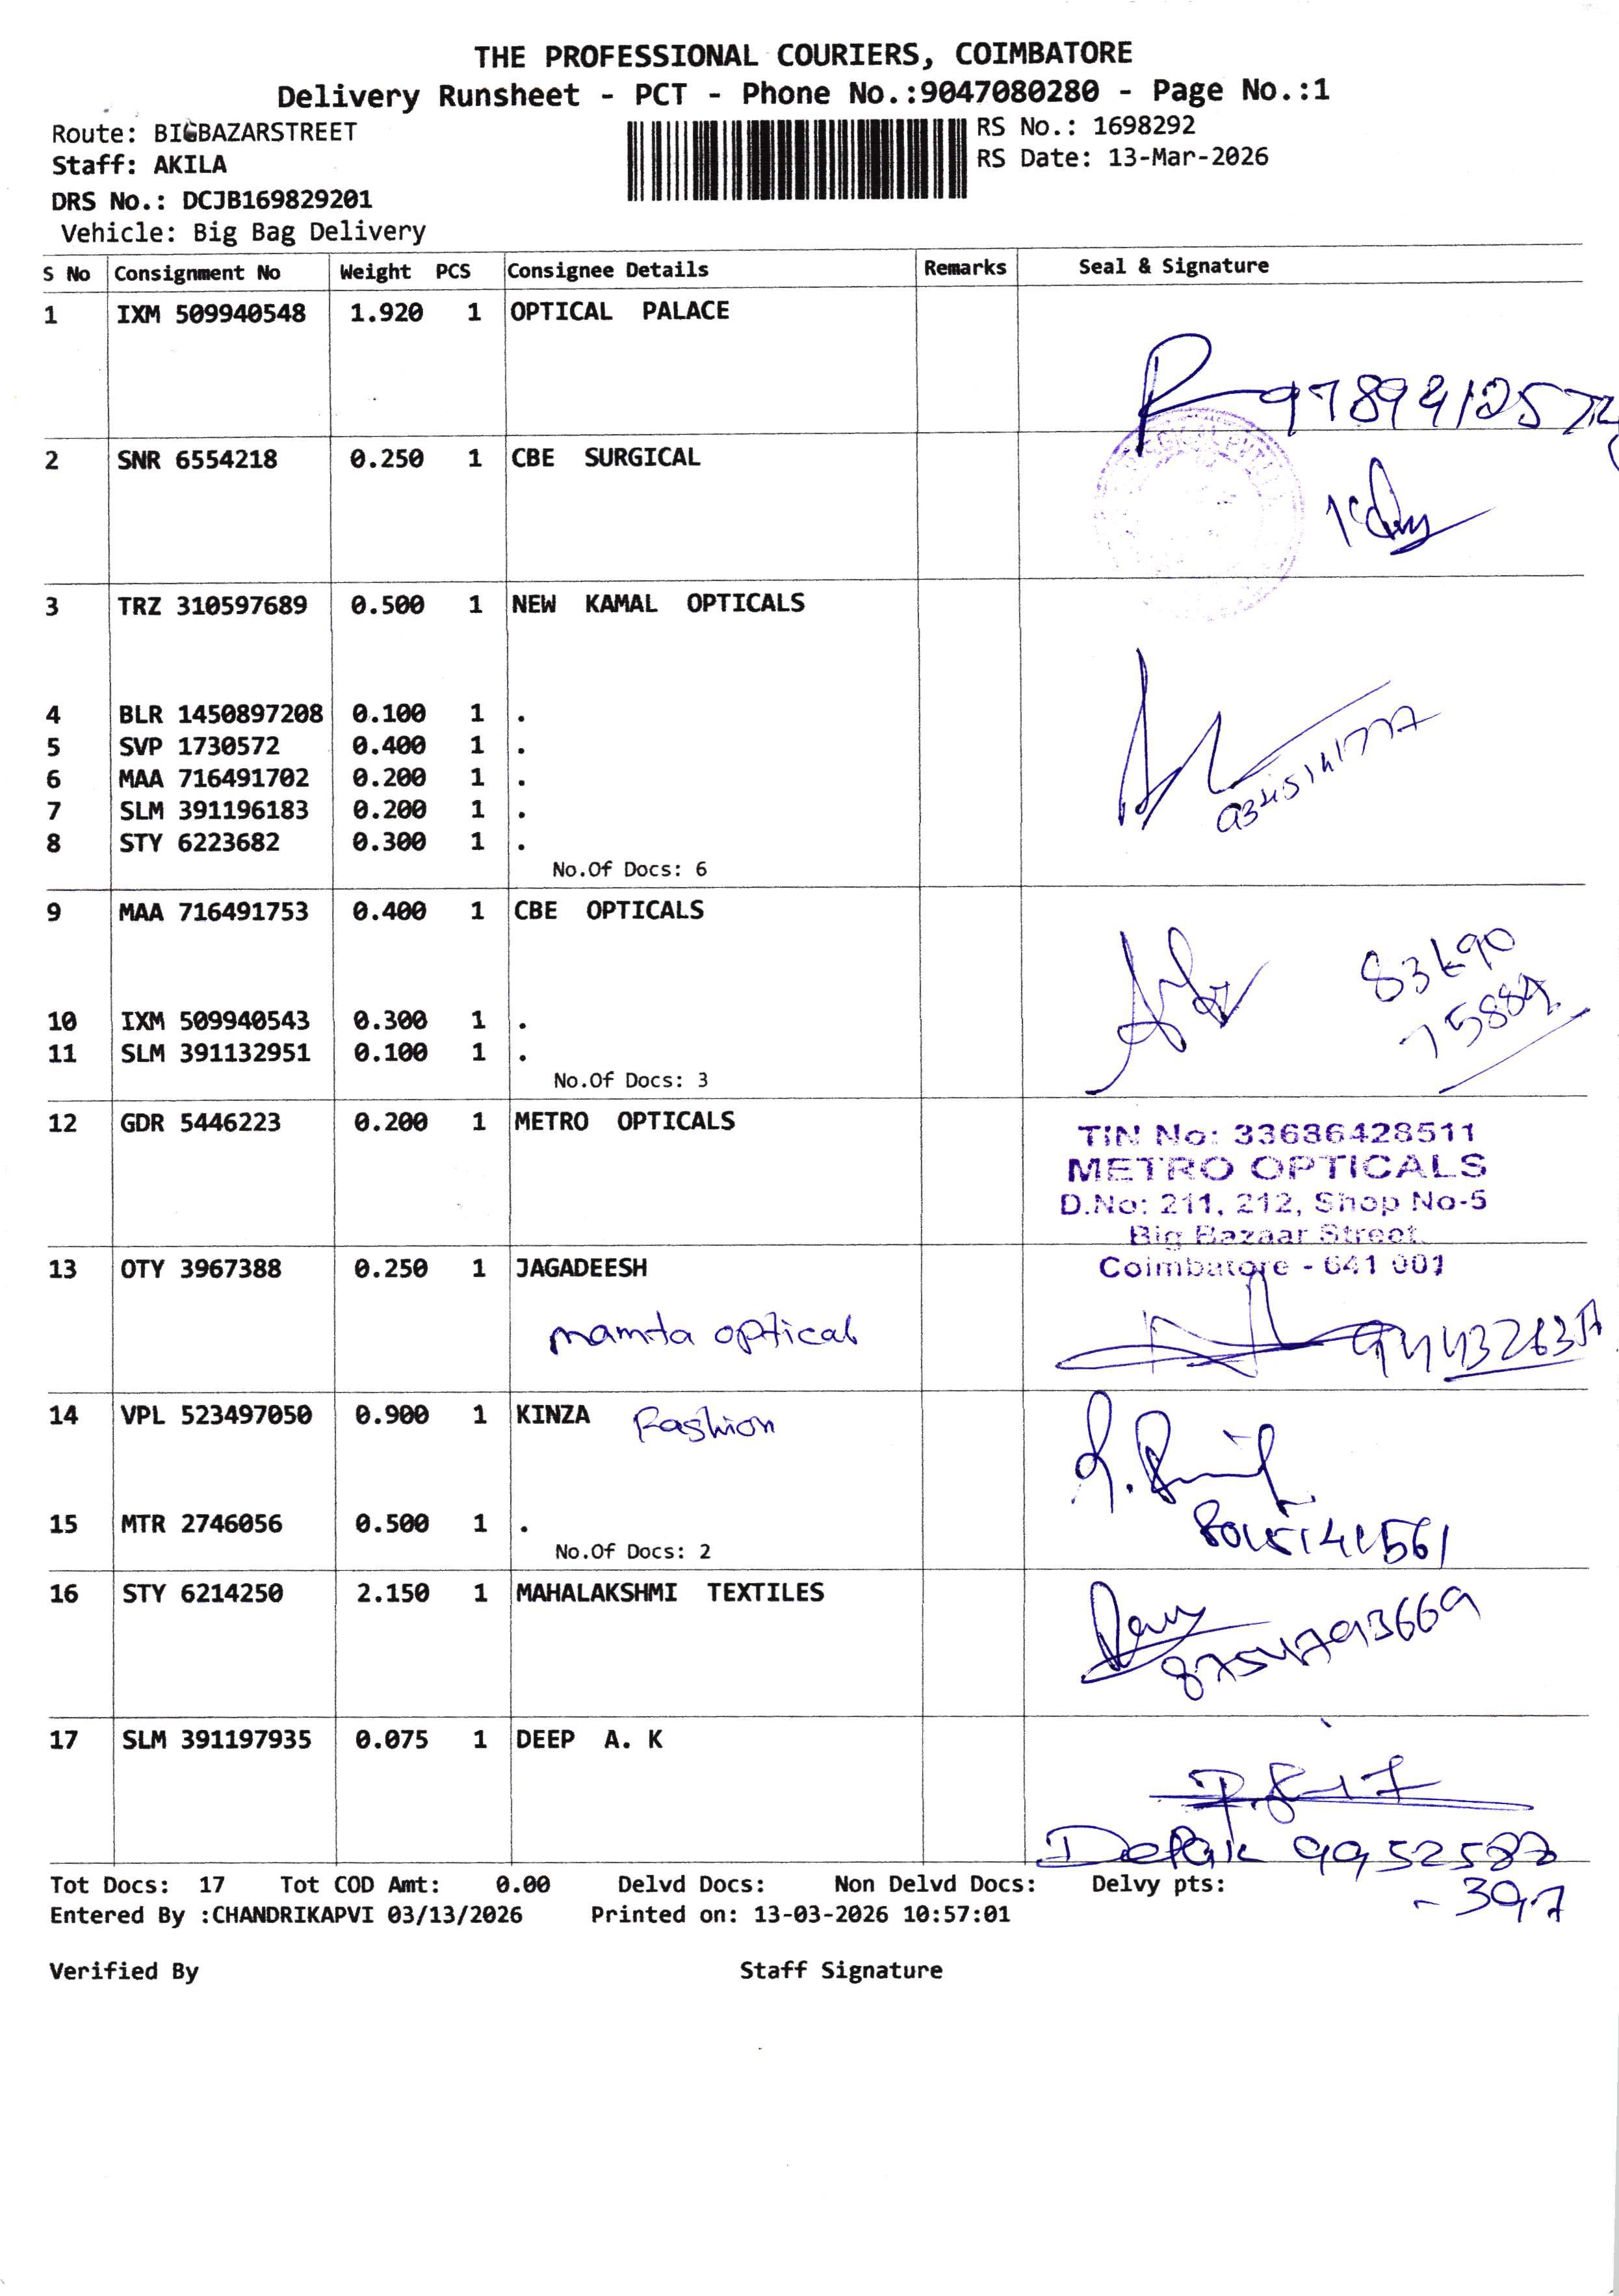 THE PROFESSIONAL COURIERS, COIMBATORE
Delivery Runsheet - PCT - Phone No.:9047080280 - Page No.:1
Route: BIGBAZARSTREET
RS No.: 1698292
Staff: AKILA
RS Date: 13-Mar-2026
DRS No.: DCJB169829201
Vehicle: Big Bag Delivery
S No Consignment No Weight PCS Consignee Details Remarks Seal & Signature
1 IXM 509940548 1.920 1 OPTICAL PALACE
2 SNR 6554218 0.250 1 CBE SURGICAL
3 TRZ 310597689 0.500 1 NEW KAMAL OPTICALS
4 BLR 1450897208 0.100 1 .
5 SVP 1730572 0.400 1 .
6 MAA 716491702 0.200 1 .
7 SLM 391196183 0.200 1 .
8 STY 6223682 0.300 1 .
No.Of Docs: 6
9 MAA 716491753 0.400 1 CBE OPTICALS
10 IXM 509940543 0.300 1 .
11 SLM 391132951 0.100 1 .
No.Of Docs: 3
12 GDR 5446223 0.200 1 METRO OPTICALS
TIN No: 33636428511
METRO OPTICALS
D.No: 211, 212, Shop No-5
Big Bazaar Street
Coimbatore - 641 001
13 OTY 3967388 0.250 1 JAGADEESH
mamta optical
14 VPL 523497050 0.900 1 KINZA Fashion
15 MTR 2746056 0.500 1 .
No.Of Docs: 2
16 STY 6214250 2.150 1 MAHALAKSHMI TEXTILES
8754793669
17 SLM 391197935 0.075 1 DEEP A. K
Depak 9952583
- 397
Tot Docs: 17 Tot COD Amt: 0.00 Delvd Docs: Non Delvd Docs: Delvy pts:
Entered By :CHANDRIKAPVI 03/13/2026 Printed on: 13-03-2026 10:57:01
Verified By Staff Signature